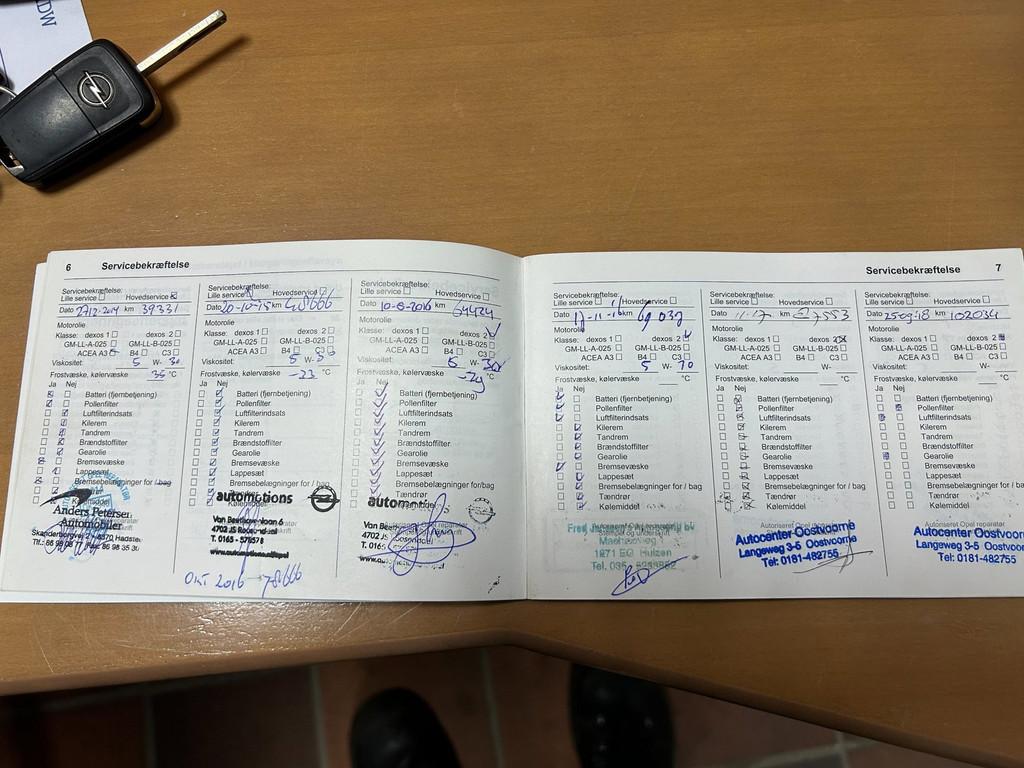 6 Servicebekræftelse
Servicebekræftelse:
Lille service Hovedservice
Dato 2712-2014 km 39331
Motorolie
Klasse: dexos 1 dexos 2
GM-LL-A-025 GM-LL-B-025
ACEA A3 B4 C3
Viskositet: 5 W- 30
Frostvæske, kølervæske 35 °C
Ja Nej
Batteri (fjernbetjening)
Pollenfilter
Luftfilterindsats
Kilerem
Tandrem
Brændstoffilter
Gearolie
Bremsevæske
Lappesæt
Bremsebelægninger for / bag
Kølemiddel
Anders Petersen
Automobiler
Servicebekræftelse:
Lille service Hovedservice
Dato 20-10-15 km 48666
Motorolie
Klasse: dexos 1 dexos 2
GM-LL-A-025 GM-LL-B-025
ACEA A3 B4 C3
Viskositet: 5 W-
Frostvæske, kølervæske -23 °C
Ja Nej
Batteri (fjernbetjening)
Pollenfilter
Luftfilterindsats
Kilerem
Tandrem
Brændstoffilter
Gearolie
Bremsevæske
Lappesæt
Bremsebelægninger for / bag
Kølemiddel
automotions
Van Beethoven-laan 6
4702 JS Roosendaal
T. 0165 - 571578
Okt 2016 78666
Servicebekræftelse:
Lille service Hovedservice
Dato 10-6-2016 km 64424
Motorolie
Klasse: dexos 1 dexos 2
GM-LL-A-025 GM-LL-B-025
ACEA A3 B4 C3
Viskositet: 5 W- 30
Frostvæske, kølervæske -29 °C
Ja Nej
Batteri (fjernbetjening)
Pollenfilter
Luftfilterindsats
Kilerem
Tandrem
Brændstoffilter
Gearolie
Bremsevæske
Lappesæt
Bremsebelægninger for/bag
Tændrør
Kølemiddel
Van
4702 JS
T. 0165
Servicebekræftelse 7
Servicebekræftelse:
Lille service Hovedservice
Dato 17-11-16 km 69 032
Motorolie
Klasse: dexos 1 dexos 2
GM-LL-A-025 GM-LL-B-025
ACEA A3 B4 C3
Viskositet: 5 W-
Frostvæske, kølervæske °C
Ja Nej
Batteri (fjernbetjening)
Pollenfilter
Luftfilterindsats
Kilerem
Tandrem
Brændstoffilter
Gearolie
Bremsevæske
Lappesæt
Bremsebelægninger for / bag
Tændrør
Kølemiddel
1271 EG Huizen
Tel. 035
Servicebekræftelse:
Lille service Hovedservice
Dato 11-17 km
Motorolie
Klasse: dexos 1 dexos 2
GM-LL-A-025 GM-LL-B-025
ACEA A3 B4 C3
Viskositet: W-
Frostvæske, kølervæske °C
Ja Nej
Batteri (fjernbetjening)
Pollenfilter
Luftfilterindsats
Kilerem
Tandrem
Brændstoffilter
Gearolie
Bremsevæske
Lappesæt
Bremsebelægninger for / bag
Tændrør
Kølemiddel
Autoriseret Opel reparatør
Autocenter Oostvoorne
Langeweg 3-5 Oostvoorne
Tel: 0181-482755
Servicebekræftelse:
Lille service Hovedservice
Dato 2509-18 km 102034
Motorolie
Klasse: dexos 1 dexos 2
GM-LL-A-025 GM-LL-B-025
ACEA A3 B4 C3
Viskositet: W-
Frostvæske, kølervæske °C
Ja Nej
Batteri (fjernbetjening)
Pollenfilter
Luftfilterindsats
Kilerem
Tandrem
Brændstoffilter
Gearolie
Bremsevæske
Lappesæt
Bremsebelægninger for / bag
Tændrør
Kølemiddel
Autoriseret Opel reparatør
Autocenter Oostvoorn
Langeweg 3-5 Oostvoorn
Tel: 0181-482755